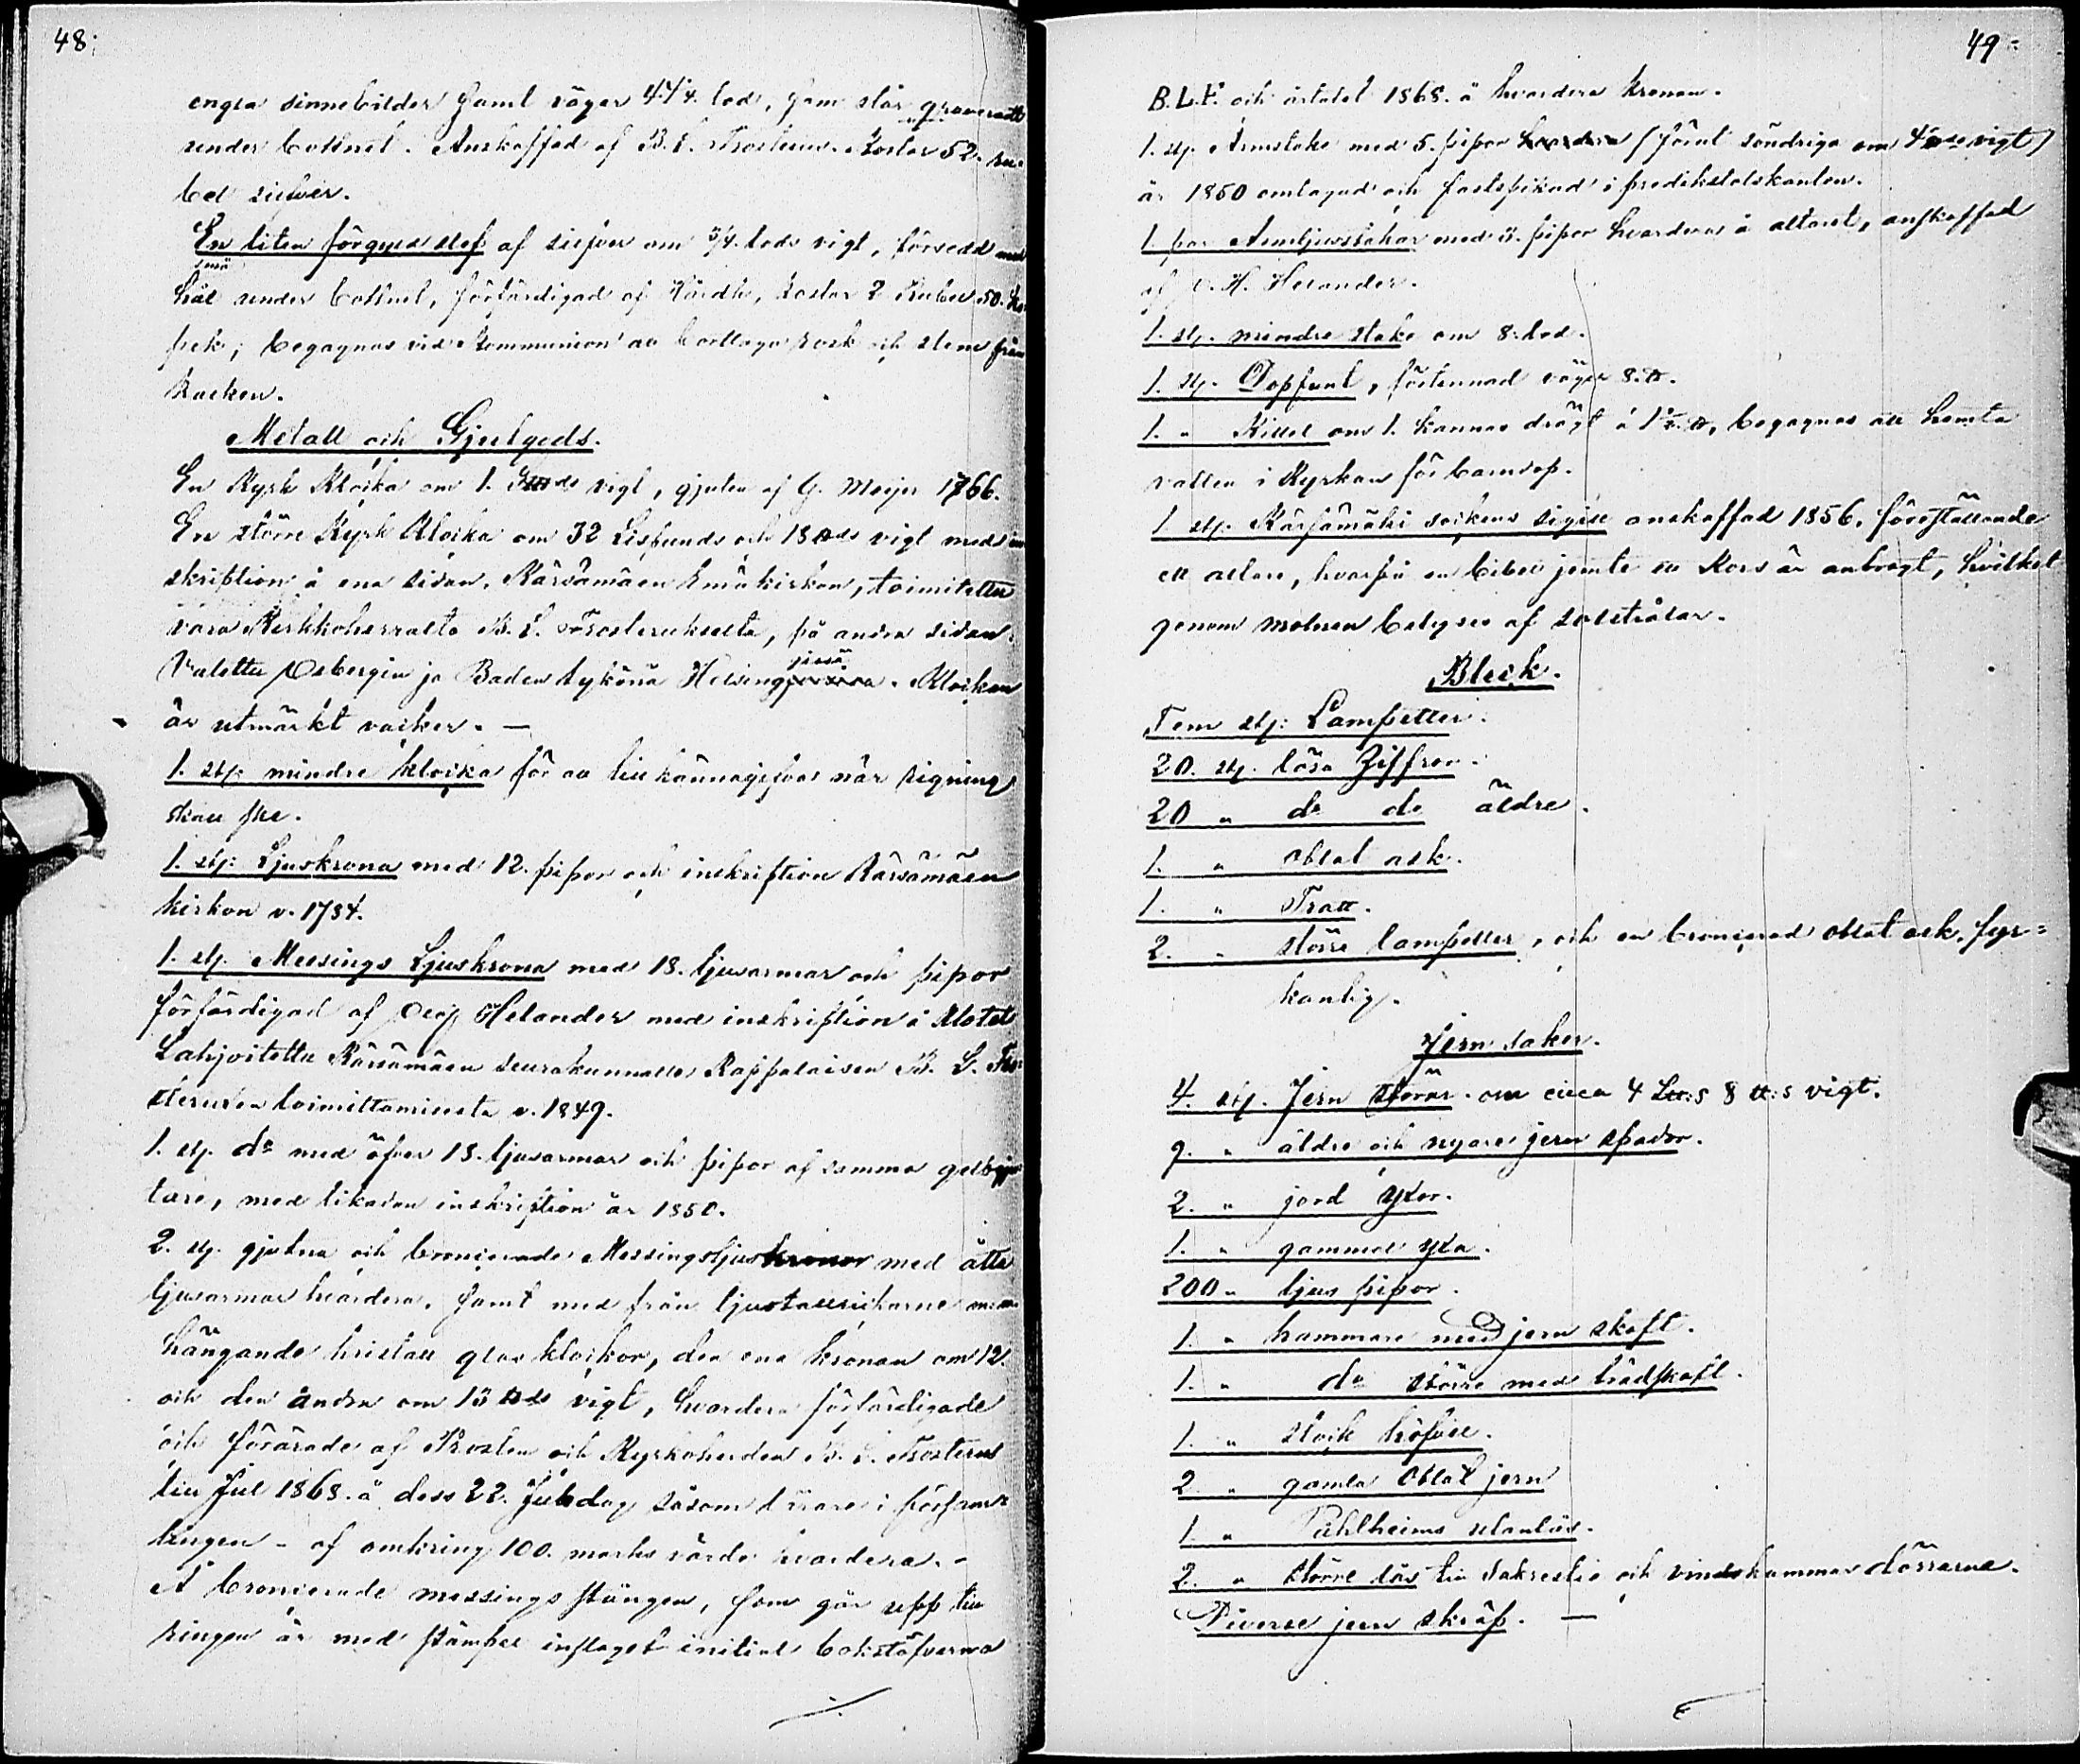 48.
engla sinnebilder samt väger 44¼. lod, som står graveradt
under bottnet. Anskaffad af B. L. Frosterus. Kostar 52. ru-
bel silfver.
En liten förgyld slef af silfver om ¾. lods vigt, försedd med
små
hål under bottnet, förfärdigad af Hårdh, kostar 2 Rubel 50. ko-
pek; begagnas vid Kommunion att borttaga kork och stem från
kalken.
Metall och Gjutgods.
En Kyrk Klocka om 1. vigt, gjuten af G. Meijer 1766.
En större Kyrk Klocka om 32 Lispunds och 18 ℔ds vigt med in
skription å ena sidan, Kärsämäen Emäkirkon, toimitettu
vara Kirkkoherralta B. L. Frosterukselta, på andra sidan:
Valettu Osbergin ja Baden tykönä Helsing
gissä
. Klockan
är utmärkt vacker. —
1. st. mindre klocka för att tillkännagifvas när ringning
skall ske.
1. st: Ljuskrona med 12. pipor och inskription Kärsämäen
kirkon v. 1784.
1. st. Messings Ljuskrona med 18. ljusarmar och pipor
förfärdigad af Olof Helander med inskription i Klotet
Lahjoitettu Kärsämäen seurakunnalle Kappalaisen B. L. Fro-
steruxen toimittamisesta v. 1849.
1. st. do med öfver 18. ljusarmar och pipor af samma gelbgju
tare, med likadan inskription år 1850.
2. st. gjutna och broncerade Messingsljuskronor med åtta
ljusarmar hvardera, samt med från ljustallrickarne
hängande kristall glas klockor, den ena kronan om 12.
och den andra om 13 ℔ds vigt, hvardera förfärdigade
och förärade af Prosten och Kyrkoherden B. L. Frosterus
till Jul 1868. å dess 22. Juledag såsom lärare i försam-
lingen – af omkring 100. marks värde hvardera. –
Å broncerade messings stången, som går upp till
ringen är med stämpel inslaget initial bokstäfverna
49.
B.L.F. och årtalet 1868. å hvardera kronan.
1. st. Armstake med 5. pipor hvardera (förut söndriga om 4 vigt)
år 1850 omlagad och fastspikad i predikstolskanten.
1. par Armljusstakar med 3. pipor hvardera å altaret, anskaffad
af O. H. Helander.
1. st. mindre stake om 8. lod.
1. st. Dopfunt, förtennad väger 8. ℔.
1. " Kittel om 1. kannas drägt á 1½ ℔, begagnas att hemta
vatten i Kyrkan för barndop.
1. st. Kärsämäki sockens sigill anskaffad 1856, föreställande
ett altare, hvarpå en bibel jemte ett Kors är anbragt, hvilket
genom molnen belyses af solstrålar.
Bleck.
Fem st: Lampetter.
20. st. lösa Ziffror.
20 " do do äldre.
1. " oblat ask.
1. " Tratt.
2. " större lampetter, och en broncerad oblat ask, fyr=
kantig.
Jern saker.
4. st. Jern störar om circa 4 L℔:s 8 ℔:s vigt.
9. " äldre och nyare jern spador.
2. " jord yxor.
1. " gammal yxa.
200 " ljus pipor.
1. " hammare med jern skaft.
1. " do större med trädskaft.
1. " stock höfvel.
2 " gamla Oblat jern
1. " Påhlheims utanlås.
2. " större lås till Sakrestie och vindskammar dörrarna.
Diverse jern skräp. —